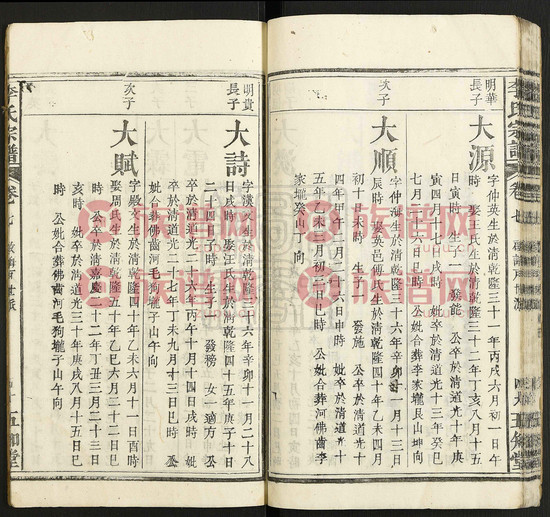 李氏宗譜
卷七
五知堂
明華
長子
大源
字仲英生於清乾隆三十一年丙戌六月初一日午
時 娶王氏生於清乾隆三十二年丁亥八月十五
日寅時 生子一 發能 公卒於清道光十年庚
寅四月初七日戌時 妣卒於清道光十三年癸巳
七月二十六日巳時 公妣合葬李家壠艮山坤向
次子
大順
字仲海生於清乾隆三十六年辛卯十一月十三日
辰時 娶英邑傅氏生於清乾隆四十年乙未四月
初十日未時 生子一 發施 公卒於清道光十
四年甲午二月二十六日申時 妣卒於清道光十
五年乙未三月初八日巳時 公妣合葬河佛崗李
家壠癸山丁向
明貴
長子
大詩
字漢文生於清乾隆三十六年辛卯十一月二十八
日戌時 娶汪氏生於清乾隆四十五年庚子十月
二十四日子時 生子一 發榜 女一適方 公
卒於清道光二十六年丙午十月十四日戌時 妣
卒於清道光二十七年丁未九月十三日時 公
妣合葬佛崗河毛狗壠子山午向
次子
大賦
字殿文生於清乾隆四十年乙未六月十一日酉時
娶周氏生於清乾隆五十年乙巳六月二十二日巳
時 公卒於清嘉慶二十二年丁丑三月二十三日
亥時 妣卒於清道光三十年庚戌八月十五日巳
時 公妣合葬佛崗河毛狗壠子山午向
李氏宗譜
卷七
五知堂
族譜网
族譜网